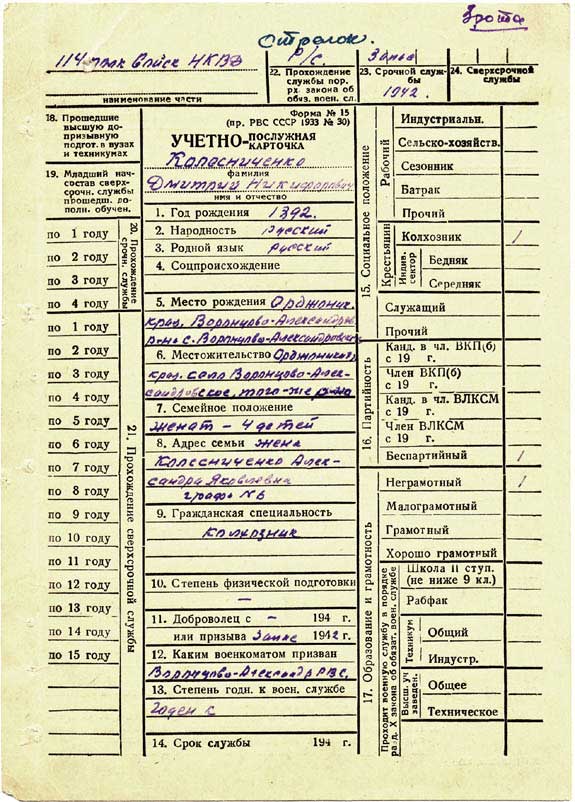 3 рота
Стрелок.
114 полк Войск НКВД
Р/с.
Запас
22. Прохождение службы пор. рх. закона об обяз. воен. сл.
23. Срочной службы
1942.
24. Сверхсрочной службы
наименование части
18. Прошедшие высшую допризывную подгот. в вузах и техникумах
19. Младший начсостав сверхсрочн. службы прошедш. дополн. обучен.
20. Прохождение срочн. службы
по 1 году
по 2 году
по 3 году
по 4 году
21. Прохождение сверхсрочной службы
по 1 году
по 2 году
по 3 году
по 4 году
по 5 году
по 6 году
по 7 году
по 8 году
по 9 году
по 10 году
по 11 году
по 12 году
по 13 году
по 14 году
по 15 году
Форма № 15
(пр. РВС СССР 1933 № 30)
УЧЕТНО-ПОСЛУЖНАЯ КАРТОЧКА
Колесниченко
фамилия
Дмитрий Никифорович
имя и отчество
1. Год рождения 1892.
2. Народность русский
3. Родной язык русский
4. Соцпроисхождение
5. Место рождения Орджоник.
край, Воронцово-Александров
р-на с. Воронцово-Александровское
6. Местожительство Орджоникид.
край село Воронцово-Алек-
сандровское, того-же р-на
7. Семейное положение
женат – 4 детей
8. Адрес семьи жена
Колесниченко Алек-
сандра Яковлевна
графа № 6
9. Гражданская специальность
колхозник
10. Степень физической подготовки
—
11. Доброволец с – 194 г.
или призыва Запас 1942 г.
12. Каким военкоматом призван
Воронцово-Александр РВС.
13. Степень годн. к воен. службе
Годен к
14. Срок службы 194 г.
15. Социальное положение
Рабочий
Индустриальн.
Сельско-хозяйств.
Сезонник
Батрак
Прочий
Крестьянин
Колхозник 1
Индив. сектор
Бедняк
Середняк
Служащий
Прочий
16. Партийность
Канд. в чл. ВКП(б) с 19 г.
Член ВКП(б) с 19 г.
Канд. в чл. ВЛКСМ с 19 г.
Член ВЛКСМ с 19 г.
Беспартийный 1
17. Образование и грамотность
Неграмотный 1
Малограмотный
Грамотный
Хорошо грамотный
Проходит военную службу в порядке разд. X закона об обязат. воен. службе
Школа II ступ. (не ниже 9 кл.)
Рабфак
Техникум
Общий
Индустр.
Высш. уч. заведен.
Общее
Техническое